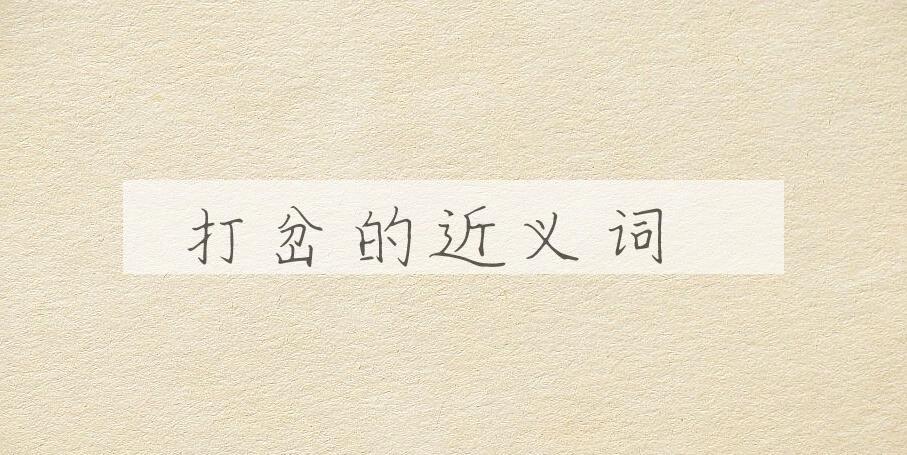 打岔的近义词